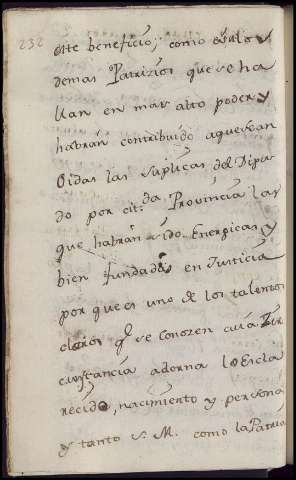 232
este beneficio; como en los
demas Patrizios que se ha
llan en mas alto poder y
habrán contribuido aque sean
Oidas las suplicas del Diputa
do por cit.da Provincia las
que habrán sido Energicas, y
bien fundadas en Justicia
por que es uno de los talentos
claros q.e se conozen cuia Cir
custancia adorna lo Escla
recido, nacimiento y persona
y tanto S. M. como la Patria